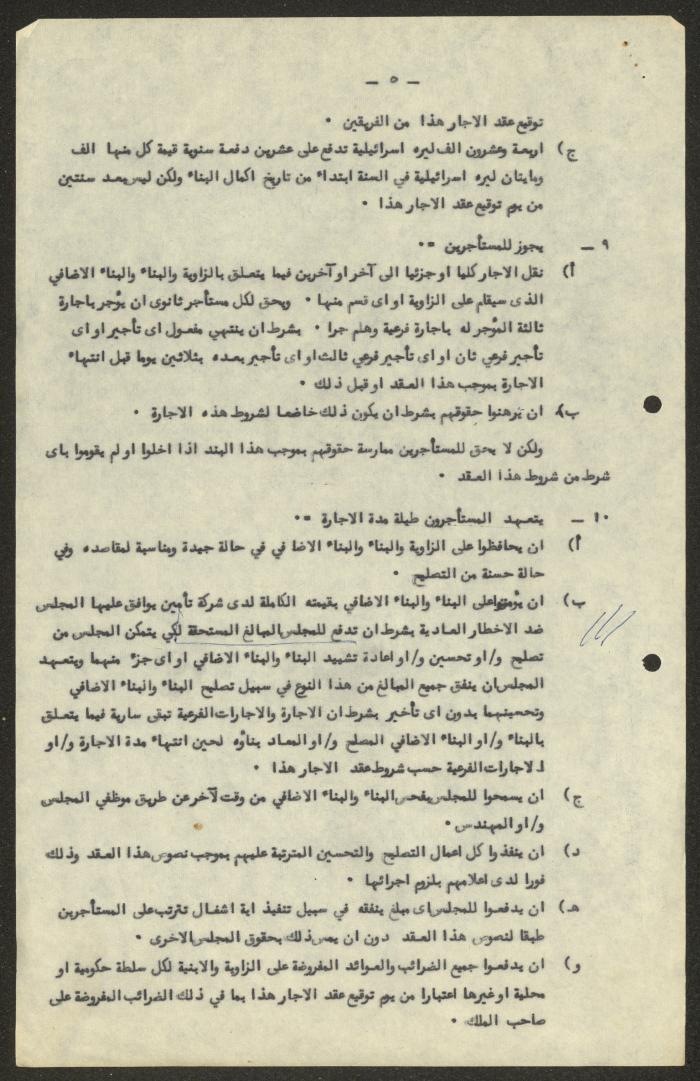 – ٥ –
توقيع عقد الاجار هذا من الفريقين ٠
ج) اربعة وعشرون الف ليره اسرائيلية تدفع على عشرين دفعة سنوية قيمة كل منها الف
ومايتان ليره اسرائيلية في السنة ابتداء من تاريخ اكمال البناء ولكن ليس بعد سنتين
من يوم توقيع عقد الاجار هذا ٠
٩ – يجوز للمستأجرين =٠
أ) نقل الاجار كليا او جزئيا الى آخر او آخرين فيما يتعلق بالزاوية والبناء والبناء الاضافي
الذى سيقام على الزاوية او اى قسم منها ٠ ويحق لكل مستأجر ثانوى ان يؤجر باجارة
ثالثة المؤجر له باجارة فرعية وهلم جرا ٠ بشرط ان ينتهي مفعول اى تأجير او اى
تأجير فرعي ثان او اى تأجير فرعي ثالث او اى تأجير بعده بثلاثين يوما قبل انتهاء
الاجارة بموجب هذا العقد او قبل ذلك ٠
ب) ان يرهنوا حقوقهم بشرط ان يكون ذلك خاضعا لشروط هذه الاجارة ٠
ولكن لا يحق للمستأجرين ممارسة حقوقهم بموجب هذا البند اذا اخلوا او لم يقوموا باى
شرط من شروط هذا العقد ٠
١٠ – يتعهد المستأجرون طيلة مدة الاجارة =٠
أ) ان يحافظوا على الزاوية والبناء والبناء الاضا في في حالة جيدة ومناسبة لمقاصده وفي
حالة حسنة من التصليح ٠
ب) ان يؤمنوا على البناء والبناء الاضافي بقيمته الكاملة لدى شركة تأمين يوافق عليها المجلس
ضد الاخطار العادية بشرط ان تدفع للمجلس المبالغ المستحقة لكي يتمكن المجلس من
تصليح و/او تحسين و/او اعادة تشييد البناء والبناء الاضافي او اى جزء منهما ويتعهد
المجلس ان ينفق جميع المبالغ من هذا النوع في سبيل تصليح البناء والبناء الاضافي
وتحسينهما بدون اى تأخير بشرط ان الاجارة والاجارات الفرعية تبقى سارية فيما يتعلق
بالبناء و/او البناء الاضافي المصلح و/او المعاد بناؤه لحين انتهاء مدة الاجارة و/او
الاجارات الفرعية حسب شروط عقد الاجار هذا ٠
ج) ان يسمحوا للمجلس بفحص البناء والبناء الاضافي من وقت لآخر عن طريق موظفي المجلس
و/او المهندس ٠
د) ان ينفذوا كل اعمال التصليح والتحسين المترتبة عليهم بموجب نصوص هذا العقد وذلك
فورا لدى اعلامهم بلزوم اجرائها ٠
هـ) ان يدفعوا للمجلس اى مبلغ ينفقه في سبيل تنفيذ اية اشغال تترتب على المستأجرين
طبقا لنصوص هذا العقد دون ان يمس ذلك بحقوق المجلس الاخرى ٠
و) ان يدفعوا جميع الضرائب والعوائد المفروضة على الزاوية والابنية لكل سلطة حكومية او
محلية او غيرها اعتبارا من يوم توقيع عقد الاجار هذا بما في ذلك الضرائب المفروضة على
صاحب الملك ٠